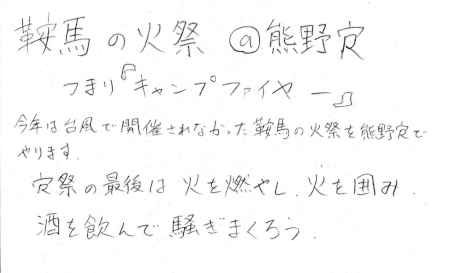 鞍馬の火祭 @熊野寮
つまり『キャンプファイヤー』
今年は台風で開催されなかった鞍馬の火祭を熊野寮で
やります.
寮祭の最後は 火を燃やし、火を囲み.
酒を飲んで 騒ぎまくろう.